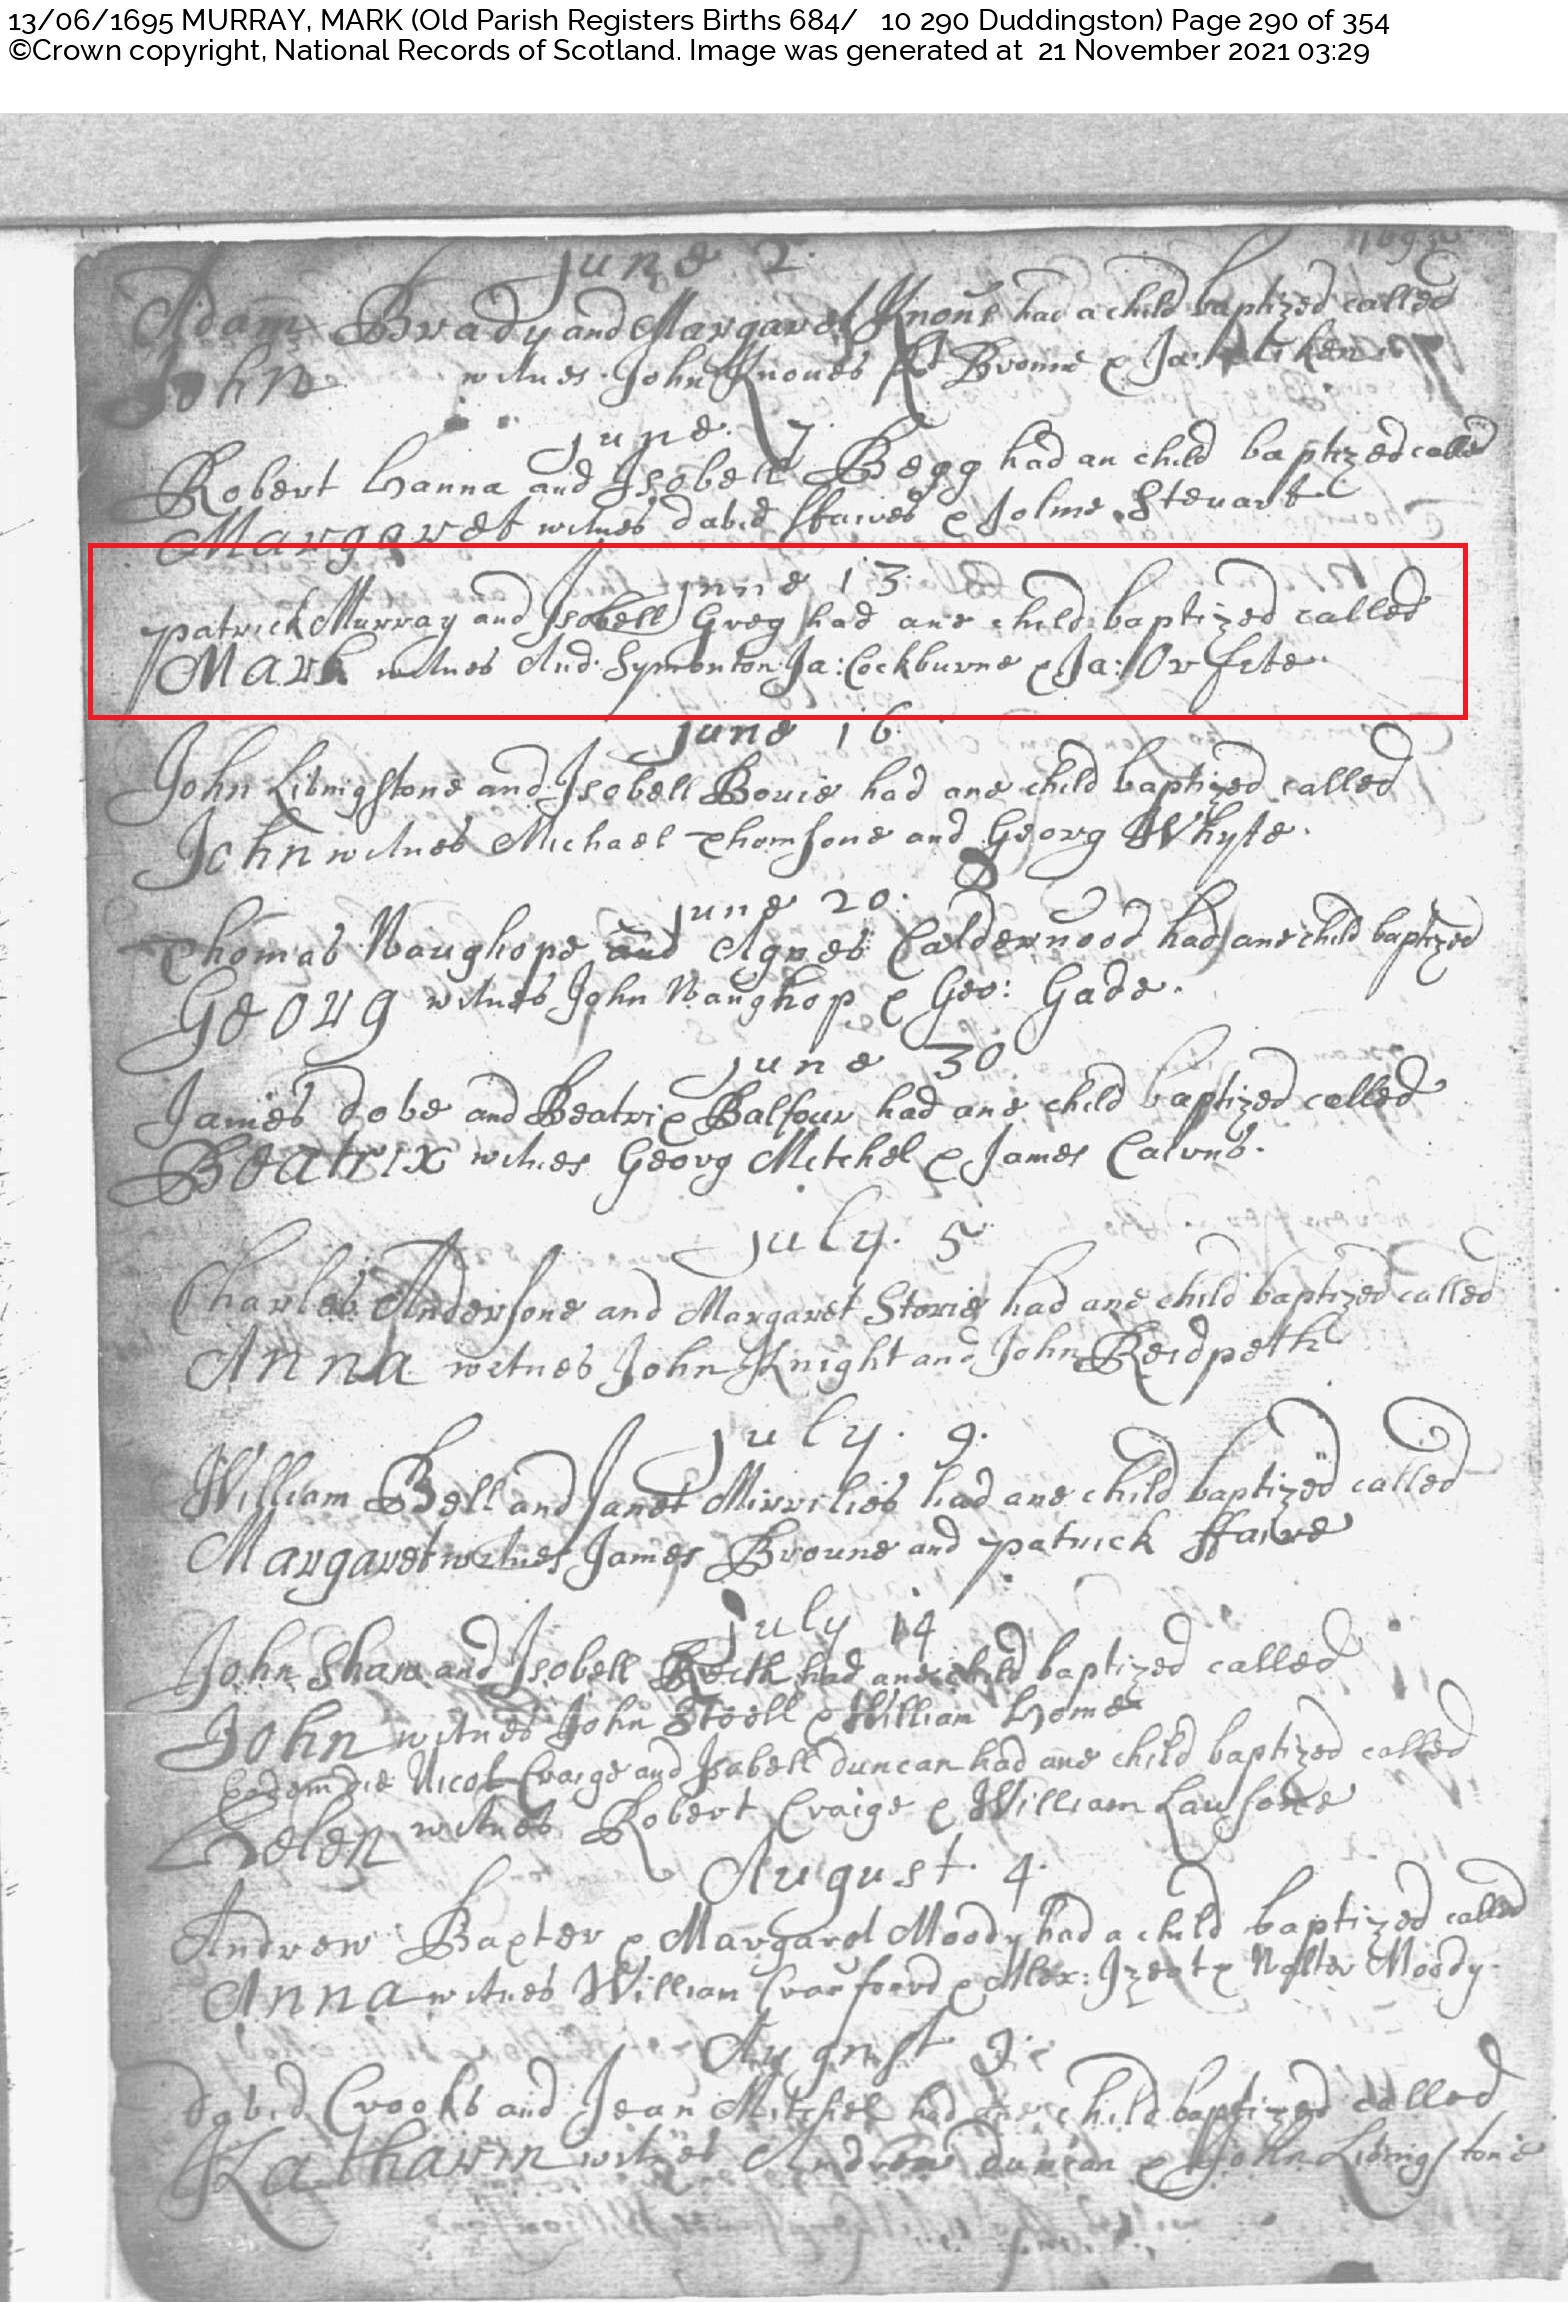 13/06/1695 MURRAY, MARK (Old Parish Registers Births 684/ 10 290 Duddingston) Page 290 of 354
©Crown copyright, National Records of Scotland. Image was generated at 21 November 2021 03:29
June 2
Adam Brady and Margaret Knous had a child baptized called
John witnes John Knoues Broune & Ja:
June 7
Robert Hanna and Isobell Begg had an child baptized called
Margaret witnes david ffaires & Steuart
June 13
patrick Murray and Isobell Greg had ane child baptized called
Mark witnes And: Symonton Ja: Cockburne & Ja: Orfete
June 16
John Livingstone and Isobell Bouie had ane child baptized called
John witnes Michael Thomsone and Georg Whyte
June 20
Thomas Naughope and Agnes Calderwood had ane child baptized
Georg witnes John Naughop & Geo: Gade
June 30
James dobe and Beatrix Balfour had ane child baptized called
Beatrix witnes Georg Mitchel & James Cairns
July 5
Charles Andersone and Margaret Storie had ane child baptized called
Anna witnes John Knight and John Reidpeth
July 9
William Bell and Janet Mirrilies had ane child baptized called
Margaret witnes James Broune and patrick ffaire
July 14
John Shaw and Isobell had ane child baptized called
John witnes John Stoell & William Home
Eodem die Nicol Craige and Isabell duncan had ane child baptized called
Helen witnes Robert Craige & William Lausone
August 4
Andrew Baxter & Margarot Moody had a child baptized called
Anna witnes William Craufoord & Alex: Izeat & Walter Moody
August 9
david Crooks and Jean Mitchel had ane child baptized called
Katharin witnes Andrew duncan & John Livingstone